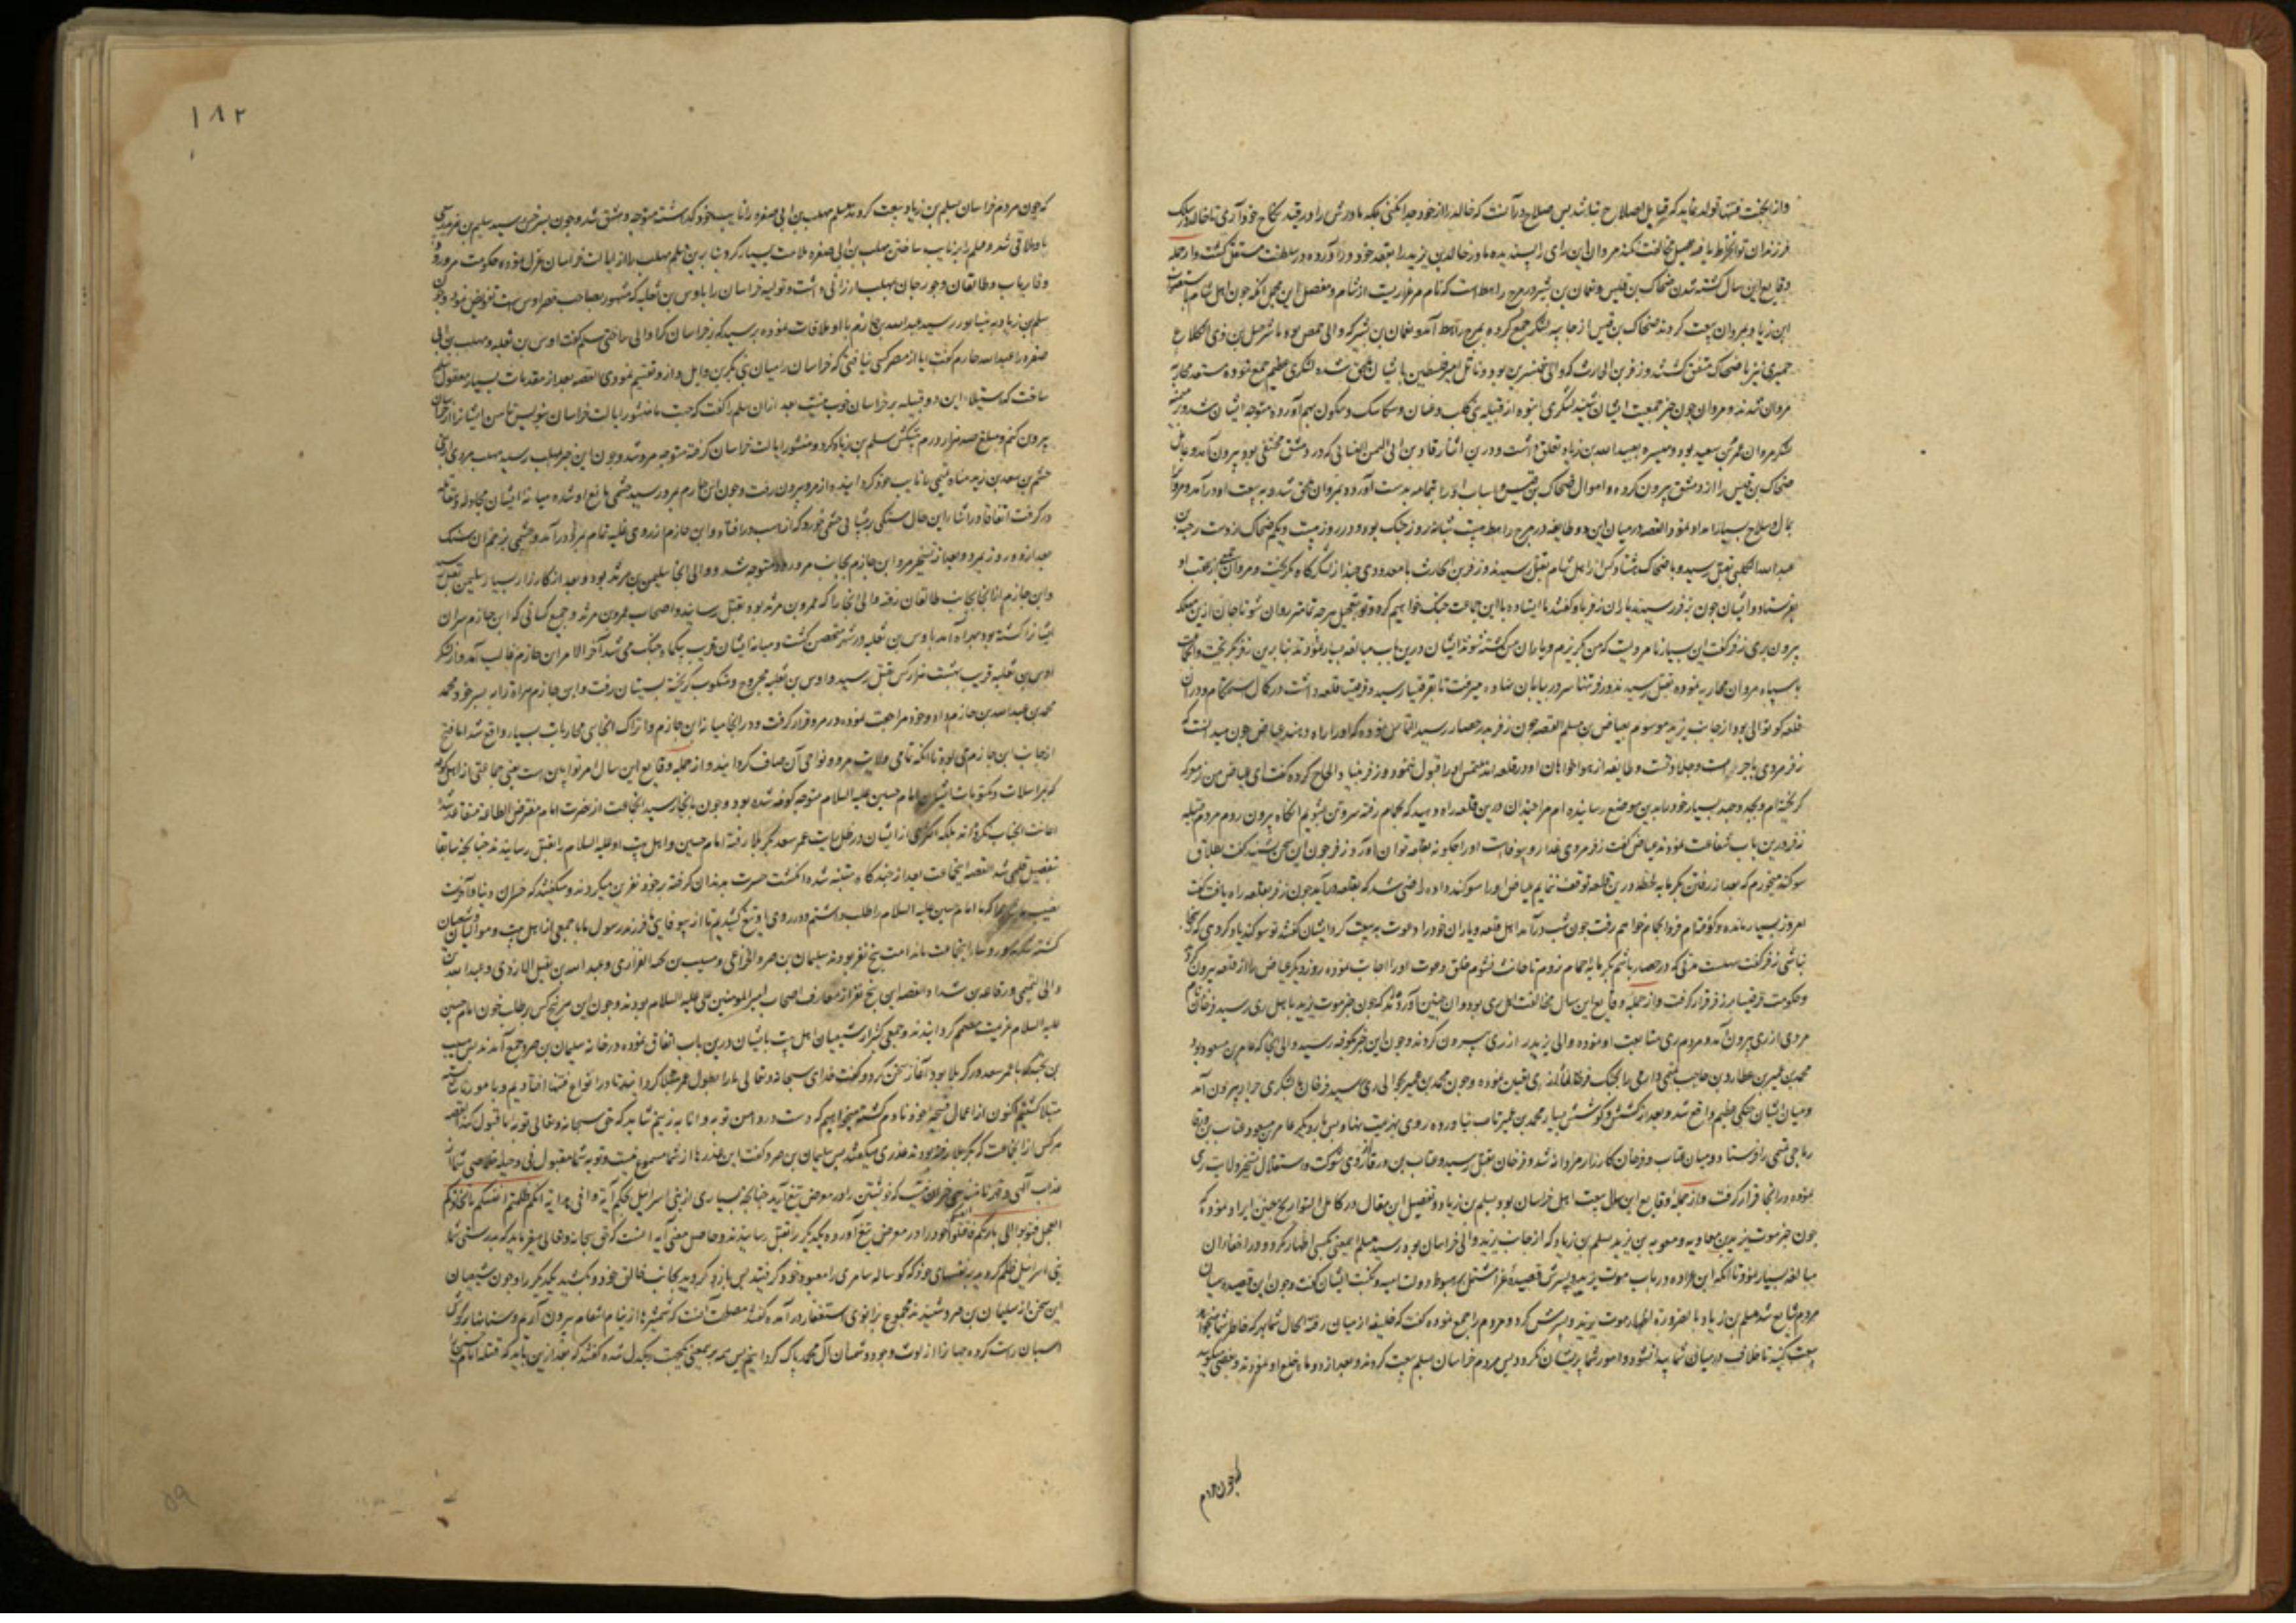 وازین جهت فتنها تولد نماید که قابل اصلاح نباشد پس صلاح در آنست که خالد را از خود جدا نکنی بلکه مادرش را در قید نکاح خود آری تا خالد در سلک
فرزندان تو انخراط یافته مخالفت نکند مروان این رای را پسندیده مادر خالد بن یزید را بعقد خود در آورده در سلطنت مستقل گشت و از جمله
وقایع این سال کشته شدن ضحاک بن قیس و نعمان بن بشیر در مرج راهط است که نام مرغزاریست از شام و مفصل این مجمل آنکه چون اهل شام
ابن زیاد بمروان بیعت کردند ضحاک بن قیس لشکر جمع کرده بمرج راهط آمد و نعمان بن بشیر که والی حمص بود با شرحبیل بن ذی الکلاع
حمیری نیز با ضحاک متفق گشتند و زفر بن الحارث که والی قنسرین بود و ناتل امیر فلسطین با ایشان ملحق شده لشکری عظیم جمع نموده مستعد محاربه
مروان شدند و مروان چون خبر جمعیت ایشان شنید لشکری انبوه از قبیله بنی کلب و غسان و سکاسک و سکون بهم آورده متوجه ایشان شد و در
لشکر مروان عمرو بن سعید بود و میسره بعبید الله بن زیاد تعلق داشت و درین اثنا یزید بن ابی الغسانی که در دمشق مختفی بود بیرون آمد و عامل
ضحاک بن قیس را از دمشق بیرون کرده و اموال ضحاک بن قیس و اسباب او را بتمامه بدست آورده بمروان ملحق شد و به بیعت او در آمد و مروان را
بمال و سلاح بسیار امداد نمود القصه در میان این دو طایفه در مرج راهط بیست شبانه روز جنگ بود و در روز بیست و یکم ضحاک از دست
عبد الله الکلبی بقتل رسید و با ضحاک هشتاد کس از اهل شام بقتل رسیدند و زفر بن الحارث با معدودی چند از لشکرگاه گریخت و مروان جمعی بعقب او
بفرستاد و ایشان چون بزفر رسیدند یاران زفر با او گفتند ما ایستاده با این جماعت جنگ خواهیم کرد و تو بتعجیل هر چه تمامتر روان شو تا جان ازین مهلکه
بیرون بری زفر گفت این بسیار نامردیست که من بگریزم و یاران من کشته شوند ایشان درین باب مبالغه بسیار نمودند بنابرین زفر بگریخت
با سپاه مروان محاربه نموده بقتل رسیدند و زفر تنها سر در بیابان نهاده میرفت تا بقرقیسا رسید و قرقیسا قلعه داشت در کمال استحکام و در آن
قلعه کوتوالی بود از جانب یزید موسوم بعیاض بن مسلم القصه چون زفر بدر حصار رسید التماس نمود که او را راه دهند عیاض چون میدانست که
زفر مردی با جرات و جلادتست و طایفه از هواخواهان او در قلعه اند ملتمس او را قبول ننمود و زفر بنیاد الحاح کرده گفت ای عیاض من از معرکه
گریخته ام و بجد و جهد بسیار خود را بدین موضع رسانیده ام مرا چندان درین قلعه راه دهید که بحمام رفته سر و تن بشویم آنگاه بیرون روم مردم قلعه
زفر درین باب شفاعت نمودند عیاض گفت زفر مردی غدار و بیوفاست او را چگونه بقلعه توان آورد زفر چون این سخن شنید گفت بطلاق
سوگند میخورم که بعد از رفتن بگرمابه لحظه درین قلعه توقف ننمایم عیاض او را سوگند داده راضی شد که بقلعه درآید چون زفر بقلعه راه یافت گفت
امروز بسیار مانده و کوفته ام فردا بحمام خواهم رفت چون شب درآمد اهل قلعه و یاران خود را دعوت به بیعت کرد ایشان گفتند تو سوگند یاد کردی که
نباشی زفر گفت مدتی که در حصار باشم بگرمابه حمام نروم تا حانث نشوم خلق دعوت او را اجابت نموده روز دیگر عیاض را از قلعه بیرون کرد
و حکومت قرقیسا بر زفر قرار گرفت و از جمله وقایع این سال مخالفت اهل ری بود و آن چنین آورده اند که چون خبر موت یزید باهل ری رسید فرخان نام
مردی از ری بیرون آمد و مردم ری متابعت او نموده والی یزید را از ری بیرون کردند و چون این خبر بکوفه رسید والی آنجا که عامر بن مسعود بود
محمد بن عمیر بن عطارد بن حاجب تمیمی دارمی را بجنگ فرخان ری تعیین نموده و چون محمد بن عمیر بحوالی ری رسید فرخان با لشکری جرار بیرون آمد
و میان ایشان جنگی عظیم واقع شد و بعد از کشش و کوشش بسیار محمد بن عمیر تاب نیاورده روی بهزیمت نهاد پس بار دیگر عامر بن مسعود عتاب بن ورقا
ریاحی تمیمی را فرستاد و میان عتاب و فرخان کارزار مردانه شد و فرخان بقتل رسید و عتاب بن ورقا از روی شوکت و استقلال تسخیر ولایت ری
نموده در آنجا قرار گرفت و از جمله وقایع این سال بیعت اهل خراسان بود بسلم بن زیاد و تفصیل این مقال در کامل التواریخ چنین ایراد نموده که
چون خبر موت یزید بن معاویه و معویه بن یزید بسلم بن زیاد که از جانب یزید والی خراسان بود رسید سلم این معنی بکسی اظهار نکرد و در اخفا آن
مبالغه بسیار نمود تا آنکه ابن عراده در باب موت یزید و پسرش قصیده غرا مشتمل بر سقوط دولت امیه و نکبت ایشان گفت و چون این قصیده میان
مردم شایع شد سلم بن زیاد بالضرورة اظهار موت یزید و پسرش کرد و مردم را جمع نموده گفت که خلیفه از میان رفته الحال شما بهر که خاطر شما میخواهد
بیعت کنید تا خلاف در میان شما پیدا نشود و امور شما پریشان نگردد پس مردم خراسان بسلم بیعت کردند و بعد از دو ماه خلع او نمودند و بعضی گویند
که چون مردم
١٨٢
که چون مردم خراسان بسلم بن زیاد بیعت کردند سلم مهلب بن ابی صفره را نایب خود گذاشته متوجه دمشق شد و چون بسرخس رسید سلیم بن مرثد
با او ملاقی شد و سلم را بر نایب ساختن مهلب بن ابی صفره ملامت بسیار کرد بنابرین سلم مهلب را از ایالت خراسان عزل نموده حکومت مرورود
و فاریاب و طالقان و جورجان بمهلب ارزانی داشت و تولیه خراسان را باوس بن ثعلبه که مشهور بصاحب قصر اوس است تفویض نمود و چون
سلم بن زیاد به نیشابور رسید عبد الله بن حازم با او ملاقات نموده پرسید که در خراسان کرا والی ساختی سلم گفت اوس بن ثعلبه و مهلب بن ابی
صفره را عبد الله حازم گفت ایا از مصر کسی نیافتی که خراسان را میان بنی بکر بن وایل و ازد تقسیم نمودی القصه بعد از مقدمات بسیار معقول سلم
ساخت که استیلاء این دو قبیله بر خراسان خوب نیست بعد ازان سلم را گفت که جهت ما منشور ایالت خراسان بنویس تا من ایشان را از خراسان
بیرون کنم و مبلغ صد هزار درم پیشکش سلم بن زیاد کرد و منشور ایالت خراسان گرفته متوجه مرو شد و چون این خبر بمهلب رسید مهلب مردی از بنی
جشم بن سعد بن زید مناة تمیمی را نایب خود گردانیده از مرو بیرون رفت و چون ابن حازم بمرو رسید جشمی مانع او شده میانه ایشان مجادله و مقاتله
در گرفت اتفاقا در اثناء این حال سنگی بر پیشانی جشمی خورد که از اسب در افتاد و ابن حازم از روی غلبه تمام بمرو درآمد و جشمی بزخم آن سنگ
بعد از دو روز بمرد و بعد از تسخیر مرو ابن حازم بجانب مرورود متوجه شد و والی آنجا سلیمن بن مرثد بود و بعد از کارزار بسیار سلیمن بقتل رسید
و ابن حازم از آنجا بجانب طالقان رفته والی آنجا را که عمرو بن مرثد بود بقتل رسانید و اصحاب عمرو بن مرثد و جمیع کسانی که ابن حازم سران
ایشان را کشته بود بهراة آمد باوس بن ثعلبه در شهر متحصن گشت و میانه ایشان قریب یکماه جنگ می شد آخر الامر ابن حازم غالب آمد و از لشکر
اوس بن ثعلبه قریب بهشت هزار کس بقتل رسید و اوس بن ثعلبه مجروح و منکوب گریخته بسیستان رفت و ابن حازم هراة را به پسر خود محمد
محمد بن عبد الله بن حازم داد و خود مراجعت نموده در مرو قرار گرفت و در آنجا میانه ابن حازم و اتراک آنجایی محاربات بسیار واقع شد اما فتح
از جانب ابن حازم می بود تا آنکه تمامی ولایت مرو و نواحی آن صاف گردانید و از جمله وقایع این سال امر توابین است یعنی جماعتی از اهل کوفه
که بمراسلات و مکتوبات ایشان امام حسین علیه السلام متوجه کوفه شده بود و چون بآنجا رسید آنجماعت از حضرت امام مفترض الطاعه متقاعد شده
اعانت آنجناب نکردند بلکه اکثری از ایشان در ظل رایت عمر سعد بکربلا رفته امام حسین و اهل بیت او علیه السلام را بقتل رسانیدند چنانچه سابقا
بتفصیل قلمی شد القصه اینجماعت بعد از چندگاه متنبه شده انگشت حسرت بدندان گرفته بر خود نفرین میکردند و میگفتند که خسران دنیا و آخرت
نصیب ما شد چرا که ما امام حسین علیه السلام را طلب داشتیم و در روی او تیغ کشیدیم تا از بیوفایی ما فرزند رسول ما با جمعی از اهل بیت و موالیان و شیعیان
کشته شدند و رؤساء اینجماعت پنج نفر بودند سلیمان بن صرد الخزاعی و مسیب بن نجبه الفزاری و عبد الله بن نفیل الازدی و عبد الله بن
والی التمیمی و رفاعه بن شداد القصه این پنج نفر از معارف اصحاب امیر المومنین علی علیه السلام بودند و چون این هر پنج کس بر طلب خون امام حسین
علیه السلام عزیمت مصمم گردانیدند و جمعی کثیر از شیعیان اهل بیت با ایشان درین باب اتفاق نموده در خانه سلیمان بن صرد جمع آمدند پس مسیب
بن نجبه که با عمر سعد در کربلا بود آغاز سخن کرد و گفت خدای سبحانه و تعالی ما را بطول عمر مبتلا گردانید تا در انواع فتنها افتادیم و بامور
مبتلا گشتیم اکنون از اعمال قبیحه خود نادم گشته میخواهیم که دست در دامن توبه و انابه زنیم شاید که حق سبحانه و تعالی توبه ما قبول کند القصه
هر کس از آنجماعت که بکربلا رفته بودند عذری میگفتند پس سلیمان بن صرد گفت این عذرها از شما مسموع نیست و توبه شما مقبول نی و حیله خلاصی شما از
عذاب الهی و قهر نامتناهی جز آن نیست که خویشتن را در معرض تیغ آرید چنانچه بسیاری از بنی اسرائیل بحکم آیه انکم ظلمتم انفسکم باتخاذکم
العجل فتوبوا الی بارئکم فاقتلوا انفسکم خود را در معرض تیغ آورده یکدیگر را بقتل رسانیدند و حاصل معنی آیه آنست که حق سبحانه و تعالی میفرماید که بدرستی شما
بنی اسرائیل ظلم کردید بر نفسهای خود که گوساله سامری را معبود خود گرفتید پس بازگردید بجانب خالق خود و بکشید یکدیگر را و چون شیعیان
این سخن از سلیمان بن صرد شنیدند مجموع بزانوی استغفار درآمده گفتند مصلحت آنست که شمشیرها از نیام انتقام بیرون آریم و سنانها بر گوش
اسبان راست کرده جهان را از لوث وجود دشمنان آل محمد پاک گردانیم پس همه برین معنی یکجهت و یکدل شده گفتند که بعد ازین باید که قتله امام حسین را
٥٩